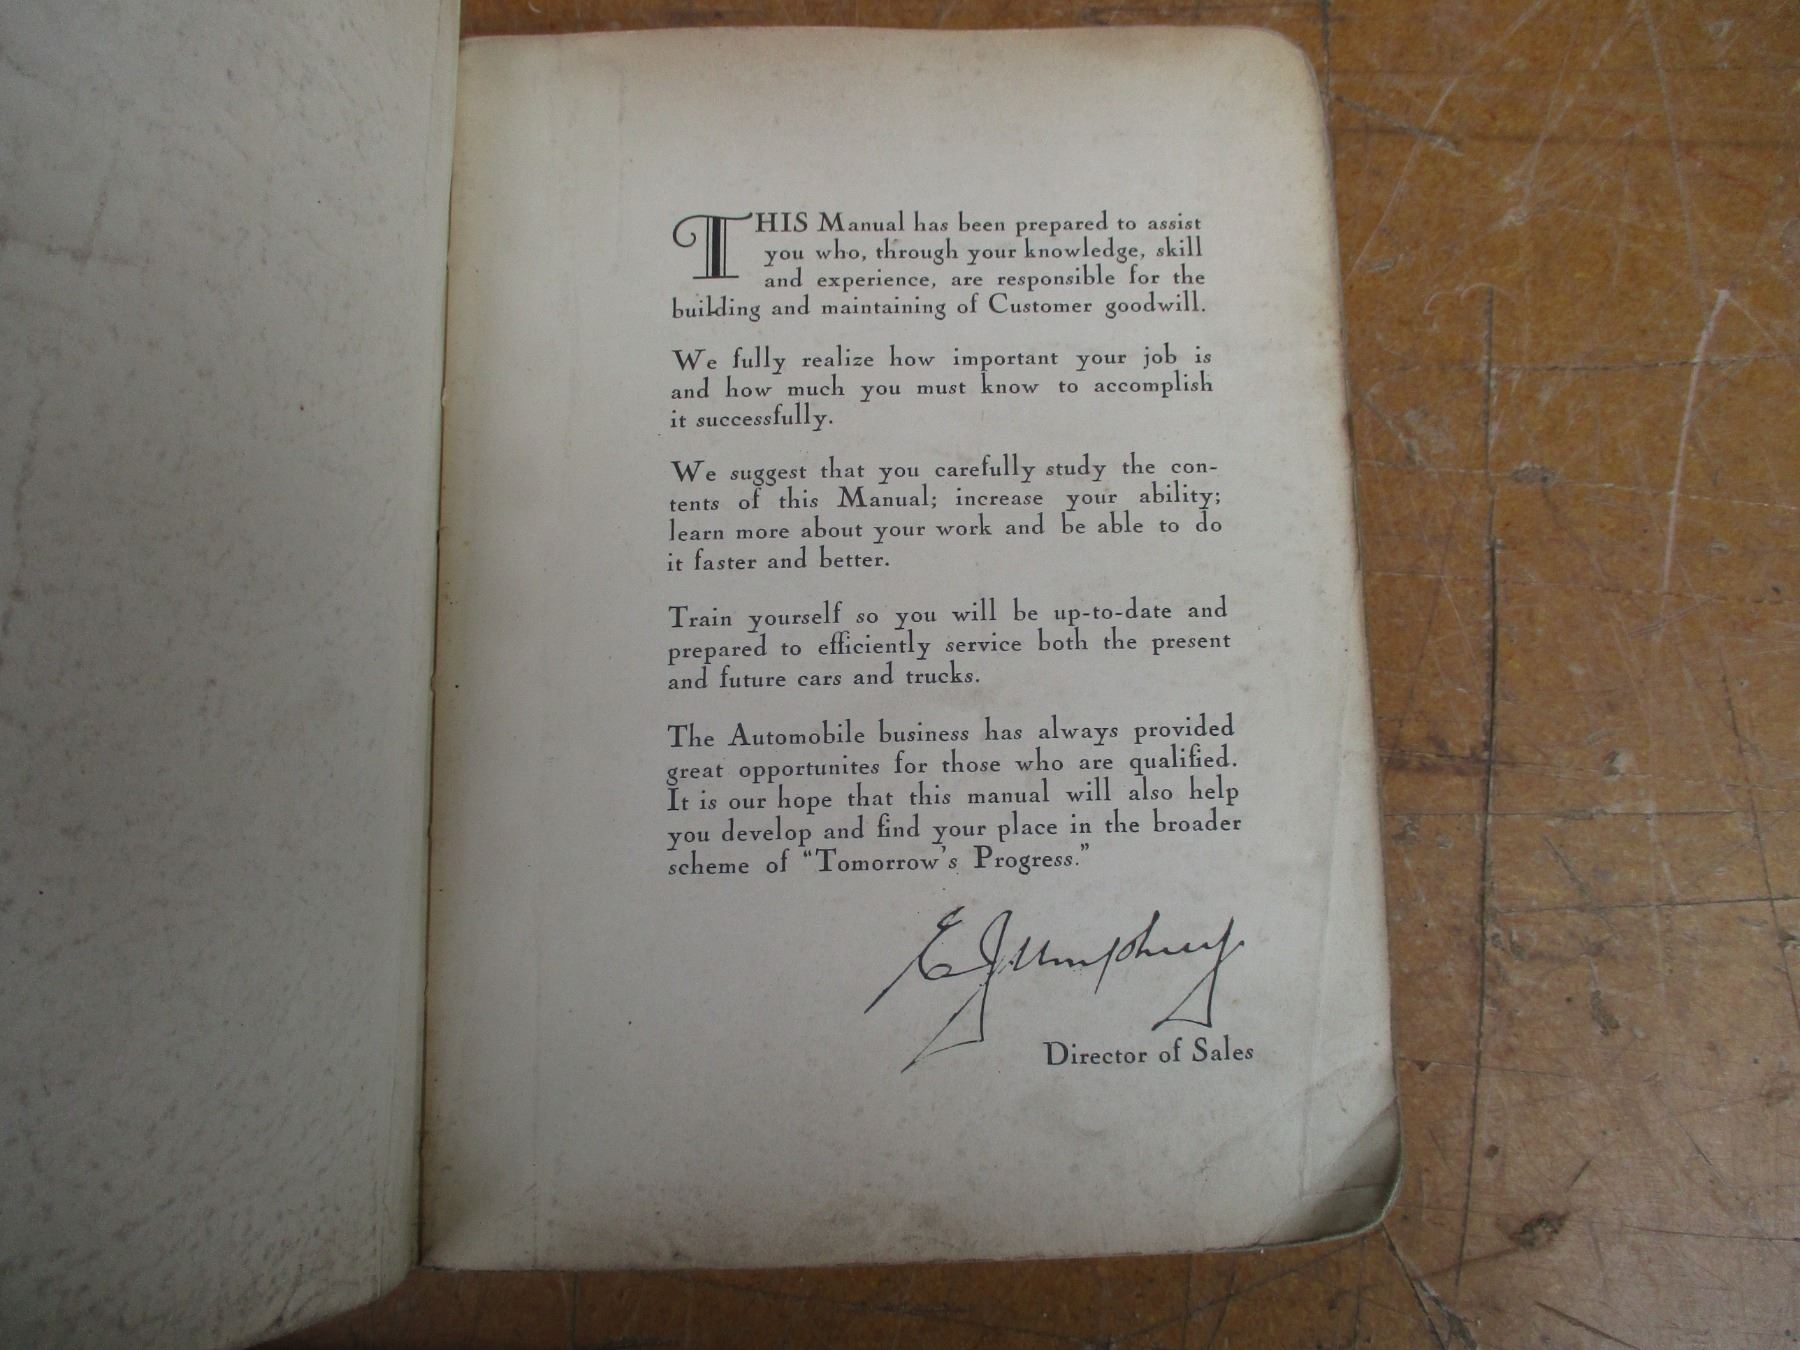 THIS Manual has been prepared to assist
you who, through your knowledge, skill
and experience, are responsible for the
building and maintaining of Customer goodwill.
We fully realize how important your job is
and how much you must know to accomplish
it successfully.
We suggest that you carefully study the con-
tents of this Manual; increase your ability;
learn more about your work and be able to do
it faster and better.
Train yourself so you will be up-to-date and
prepared to efficiently service both the present
and future cars and trucks.
The Automobile business has always provided
great opportunites for those who are qualified.
It is our hope that this manual will also help
you develop and find your place in the broader
scheme of “Tomorrow's Progress.”
E Humphrey
Director of Sales